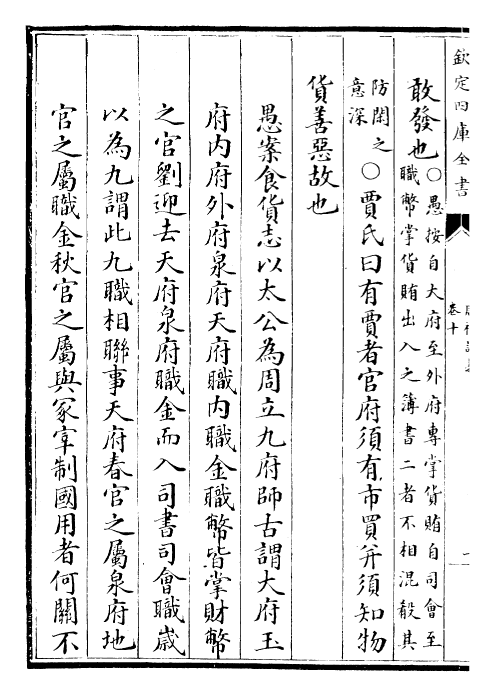 欽定四庫全書
卷十
敢發也○愚按自大府至外府專掌貨賄自司會至
職幣掌貨賄出入之簿書二者不相混殽其
防閑之
意深○賈氏曰有賈者官府須有市買并須知物
貨善惡故也
愚案食貨志以太公為周立九府師古謂大府玉
府内府外府泉府天府職内職金職幣皆掌財幣
之官劉迎去天府泉府職金而入司書司會職歲
以為九謂此九職相聯事天府春官之屬泉府地
官之屬職金秋官之屬與冢宰制國用者何關不